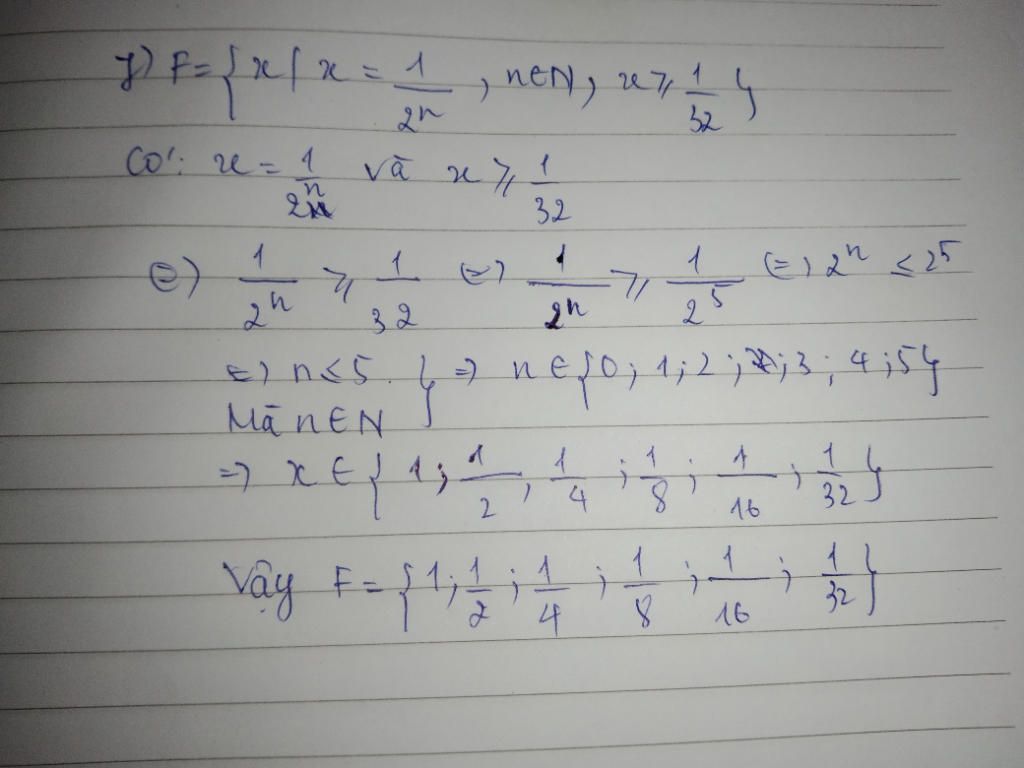 f) F = { x | x = 1/2ⁿ , n∈N, x ≥ 1/32 }
Có: x = 1/2ⁿ và x ≥ 1/32
⇔) 1/2ⁿ ≥ 1/32 ⇔) 1/2ⁿ ≥ 1/2⁵ ⇔) 2ⁿ ≤ 2⁵
⇔) n ≤ 5 . } ⇒) n ∈ { 0 ; 1 ; 2 ; 3 ; 4 ; 5 }
Mà n∈N
⇒) x ∈ { 1 ; 1/2 ; 1/4 ; 1/8 ; 1/16 ; 1/32 }
Vậy F = { 1 ; 1/2 ; 1/4 ; 1/8 ; 1/16 ; 1/32 }